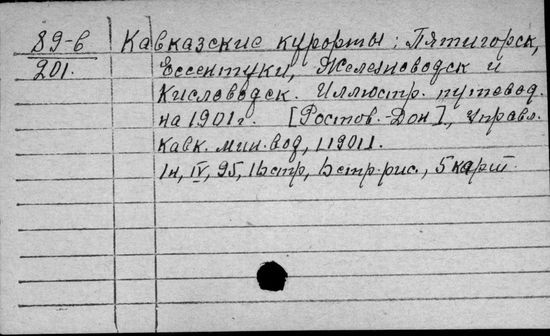 89-в Кавказские курорты: Пятигорск,
201. Ессентуки, Железноводск и
Кисловодск. Иллюстр. путевод.
на 1901 г. [Ростов.-Дон], Управл.
Кавк. мин. вод,
IV, 95, стр, стр. рис., 5 карт.